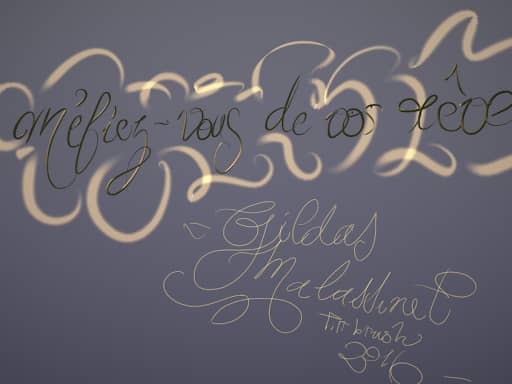 Méfiez-vous de vos rêve
Gildas
Malassinet
Tilt brush
2016